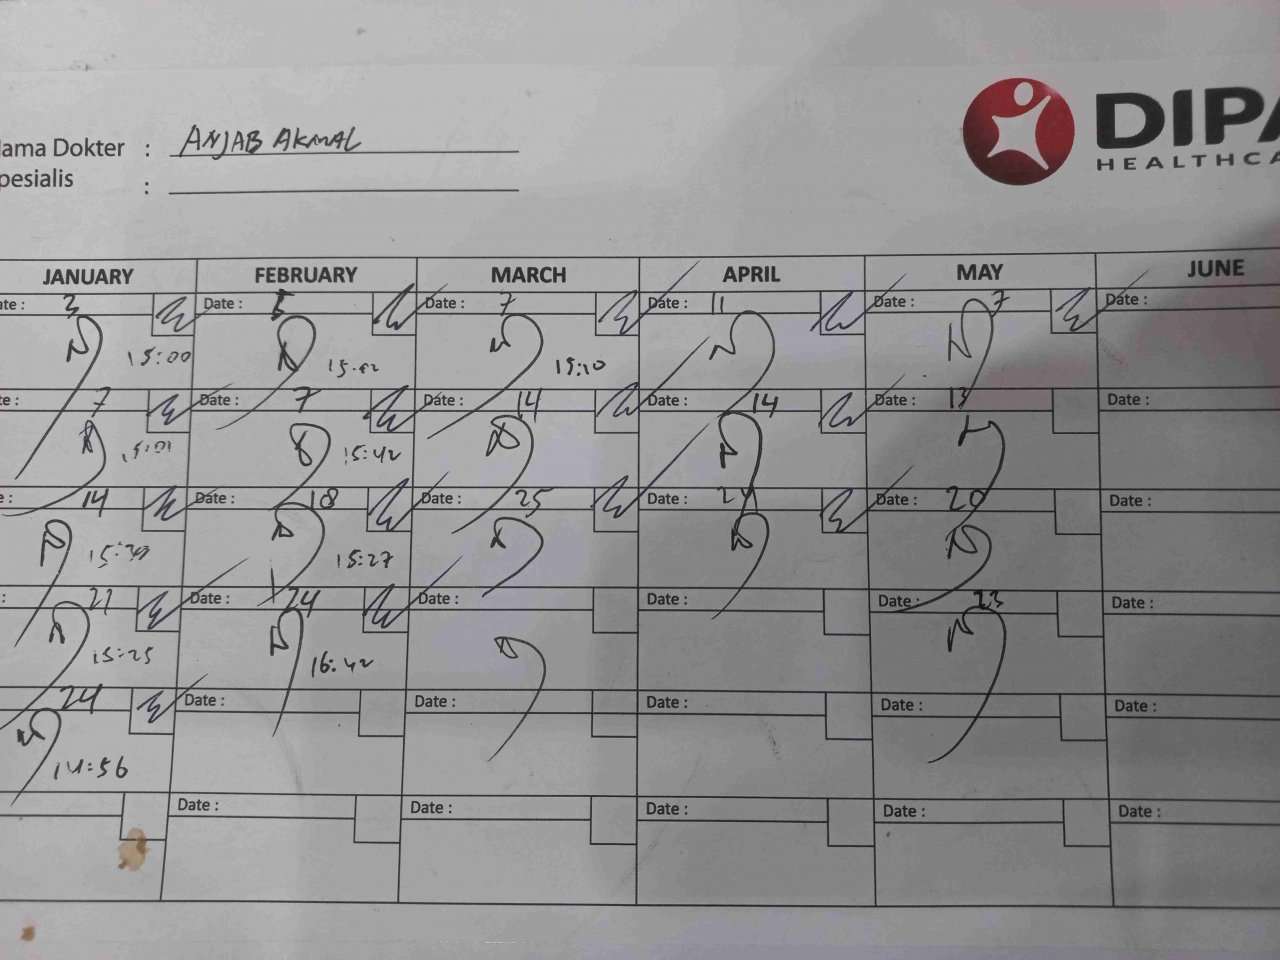 DIPA
HEALTHCA
ama Dokter : ANJAB AKMAL
pesialis :
JANUARY FEBRUARY MARCH APRIL MAY JUNE
ate : 3 Date : 5 Date : 7 Date : 11 Date : 7 Date :
15:00 15:10
te : 7 Date : 7 Date : 14 Date : 14 Date : 13 Date :
15:01 15:42
e : 14 Date : 18 Date : 25 Date : Date : 20 Date :
15:27
: 21 Date : 24 Date : Date : Date : 23 Date :
15:25 16:42
24 Date : Date : Date : Date : Date :
14:56
Date : Date : Date : Date : Date :